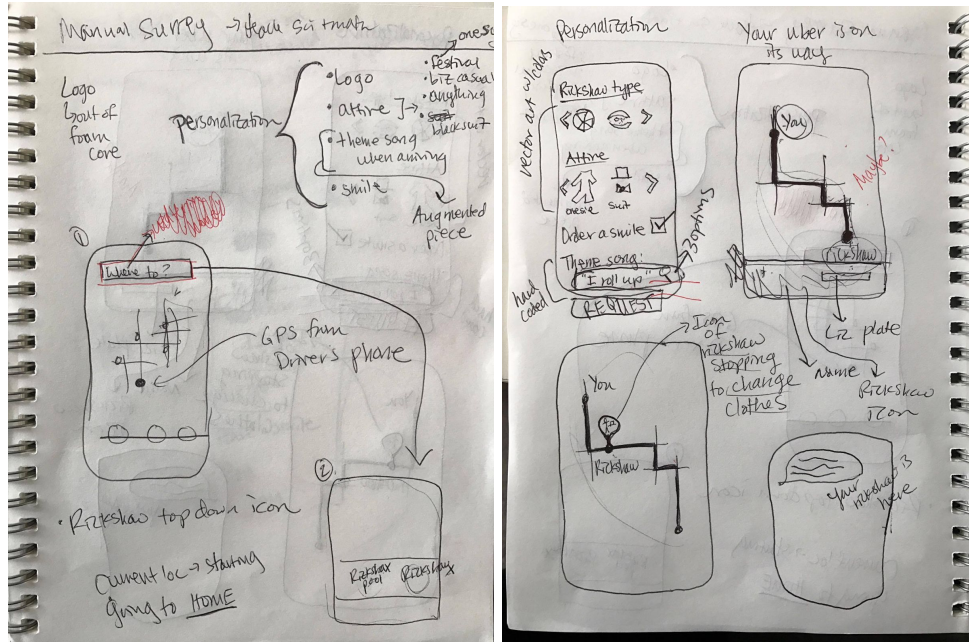 Manual Surrey → 
Logo
↳ out of
foam
core
Personalization
• Logo
• attire
• theme song
when arriving
• smile
• festival
• biz casual
• anything
black suit
Augmented
piece
①
Where to?
GPS from
Driver's phone
②
• Rickshaw top down icon
Current loc → starting
going to HOME
Rickshaw
pool
Rickshaw
Personalization
vector art w/
Rickshaw type
Attire
onesie
suit
Order a smile
Theme song:
"I roll up"
3 options
hard
coded
REQUEST
Your uber is on
its way
You
Maybe?
rickshaw
Liz plate
Name
Rickshaw
icon
Icon
of
rickshaw
stopping
to change
clothes
You
Rickshaw
your
rickshaw is
here